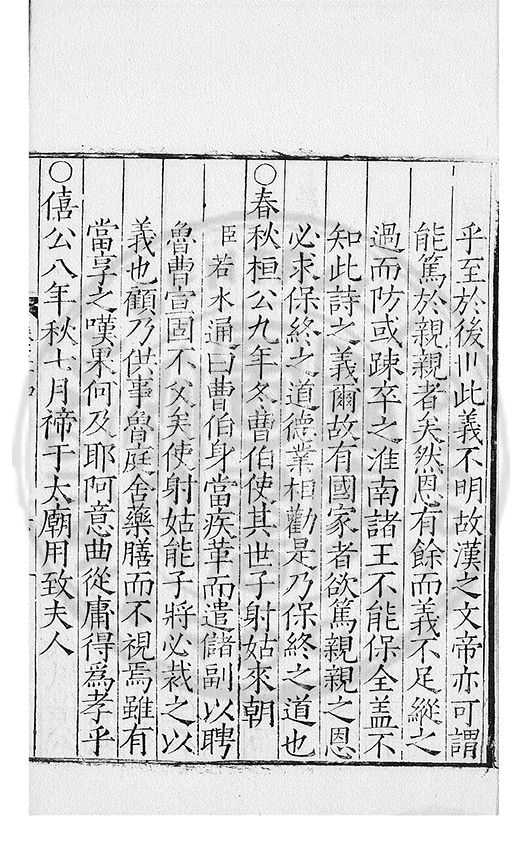 乎至於後世此義不明故漢之文帝亦可謂
能篤於親親者矣然恩有餘而義不足縱之
過而防或踈卒之淮南諸王不能保全盖不
知此詩之義爾故有國家者欲篤親親之恩
必求保終之道德業相勸是乃保終之道也
○春秋桓公九年冬曹伯使其世子射姑來朝
臣若水通曰曹伯身當疾革而遣儲副以聘
魯曹宣固不父矣使射姑能子將必裁之以
義也顧乃供事魯庭舍藥膳而不視焉雖有
當享之嘆果何及耶阿意曲從庸得爲孝乎
○僖公八年秋七月禘于太廟用致夫人